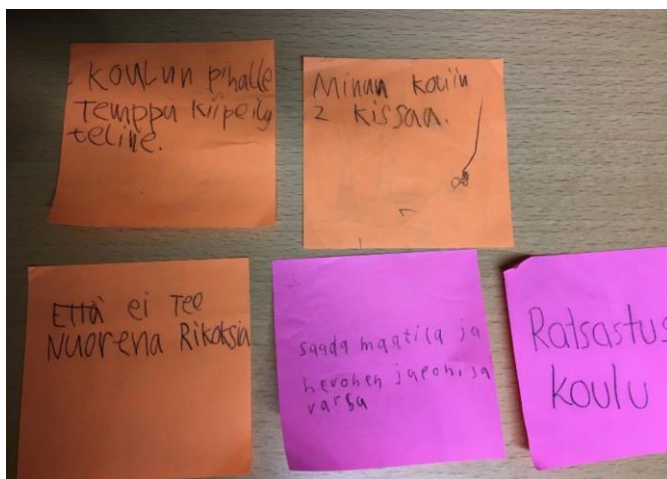 KOULUN pihalle
Temppu kiipeily
teline.
Minun kotiin
2 kissaa.
Että ei Tee
Nuorena Rikoksia
saada maatila ja
hevonen japoni ja
varsa
Ratsastus
koulu